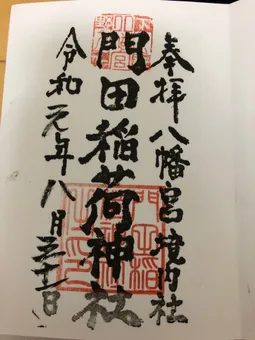 奉拝 八幡宮境内社
門田稲荷神社
令和元年八月日